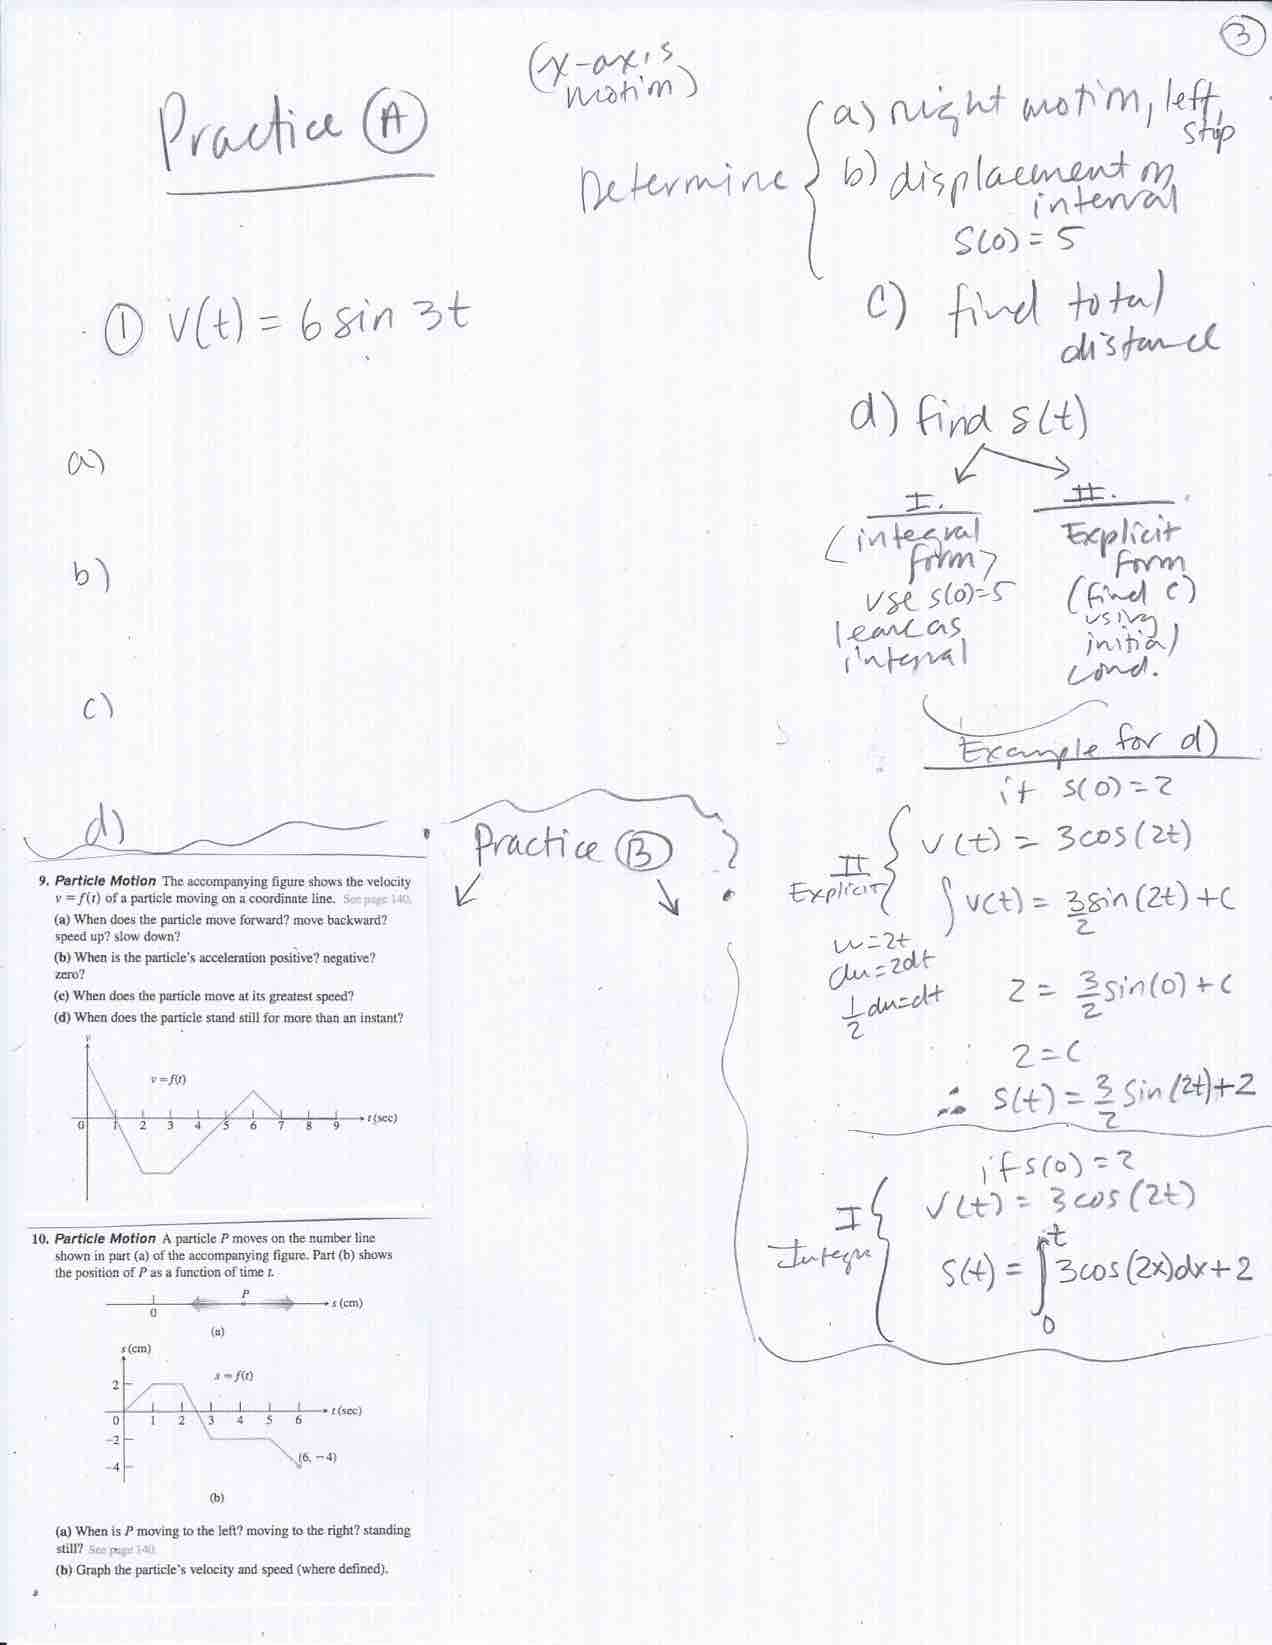 3
(x-axis
motion)
Practice A
Determine
a) right motion, left,
stop
b) displacement on
interval
S(0) = 5
c) find total
distance
① v(t) = 6 sin 3t
d) find s(t)
a)
b)
c)
d)
I.
(integral
form)
use s(0)=5
leave as
integral
II.
Explicit
form
(find c)
using
initial
cond.
Example for d)
if s(0) = 2
II
Explicit
v(t) = 3cos(2t)
∫ v(t) = 3/2 sin(2t) + C
u=2t
du=2dt
1/2 du=dt
2 = 3/2 sin(0) + C
2 = C
∴ s(t) = 3/2 sin(2t)+2
if s(0) = 2
I
v(t) = 3cos(2t)
s(t) = ∫₀ᵗ 3cos(2x)dx + 2
Practice B
9. Particle Motion The accompanying figure shows the velocity
v = f(t) of a particle moving on a coordinate line. See page 140.
(a) When does the particle move forward? move backward?
speed up? slow down?
(b) When is the particle's acceleration positive? negative?
zero?
(c) When does the particle move at its greatest speed?
(d) When does the particle stand still for more than an instant?
v
v = f(t)
0 1 2 3 4 5 6 7 8 9 t (sec)
10. Particle Motion A particle P moves on the number line
shown in part (a) of the accompanying figure. Part (b) shows
the position of P as a function of time t.
P
0
s (cm)
(a)
s (cm)
s = f(t)
2
0 1 2 3 4 5 6 t (sec)
−2
−4
(6, −4)
(b)
(a) When is P moving to the left? moving to the right? standing
still? See page 140.
(b) Graph the particle's velocity and speed (where defined).